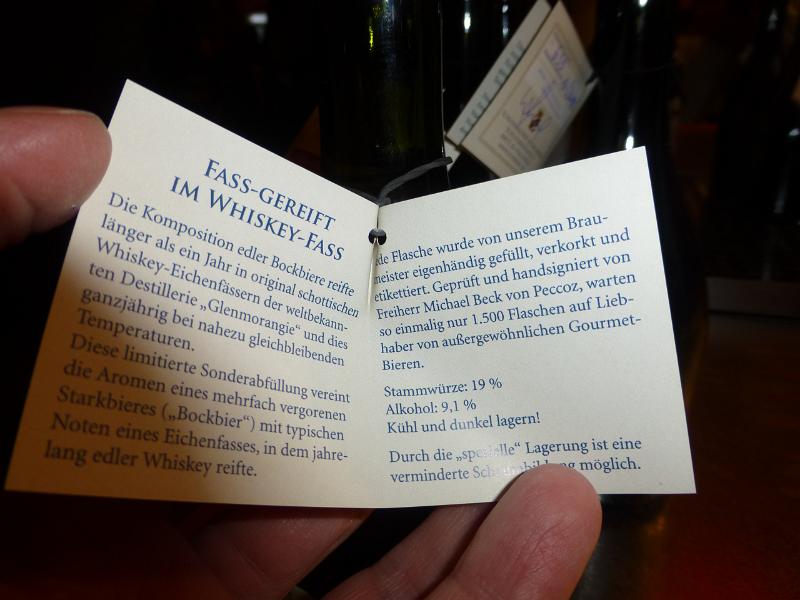 FASS-GEREIFT
IM WHISKEY-FASS
Die Komposition edler Bockbiere reifte
länger als ein Jahr in original schottischen
Whiskey-Eichenfässern der weltbekann-
ten Destillerie „Glenmorangie“ und dies
ganzjährig bei nahezu gleichbleibenden
Temperaturen.
Diese limitierte Sonderabfüllung vereint
die Aromen eines mehrfach vergorenen
Starkbieres („Bockbier“) mit typischen
Noten eines Eichenfasses, in dem jahre-
lang edler Whiskey reifte.
de Flasche wurde von unserem Brau-
meister eigenhändig gefüllt, verkorkt und
etikettiert. Geprüft und handsigniert von
Freiherr Michael Beck von Peccoz, warten
so einmalig nur 1.500 Flaschen auf Lieb-
haber von außergewöhnlichen Gourmet-
Bieren.
Stammwürze: 19 %
Alkohol: 9,1 %
Kühl und dunkel lagern!
Durch die „spezielle“ Lagerung ist eine
verminderte Schaumbildung möglich.